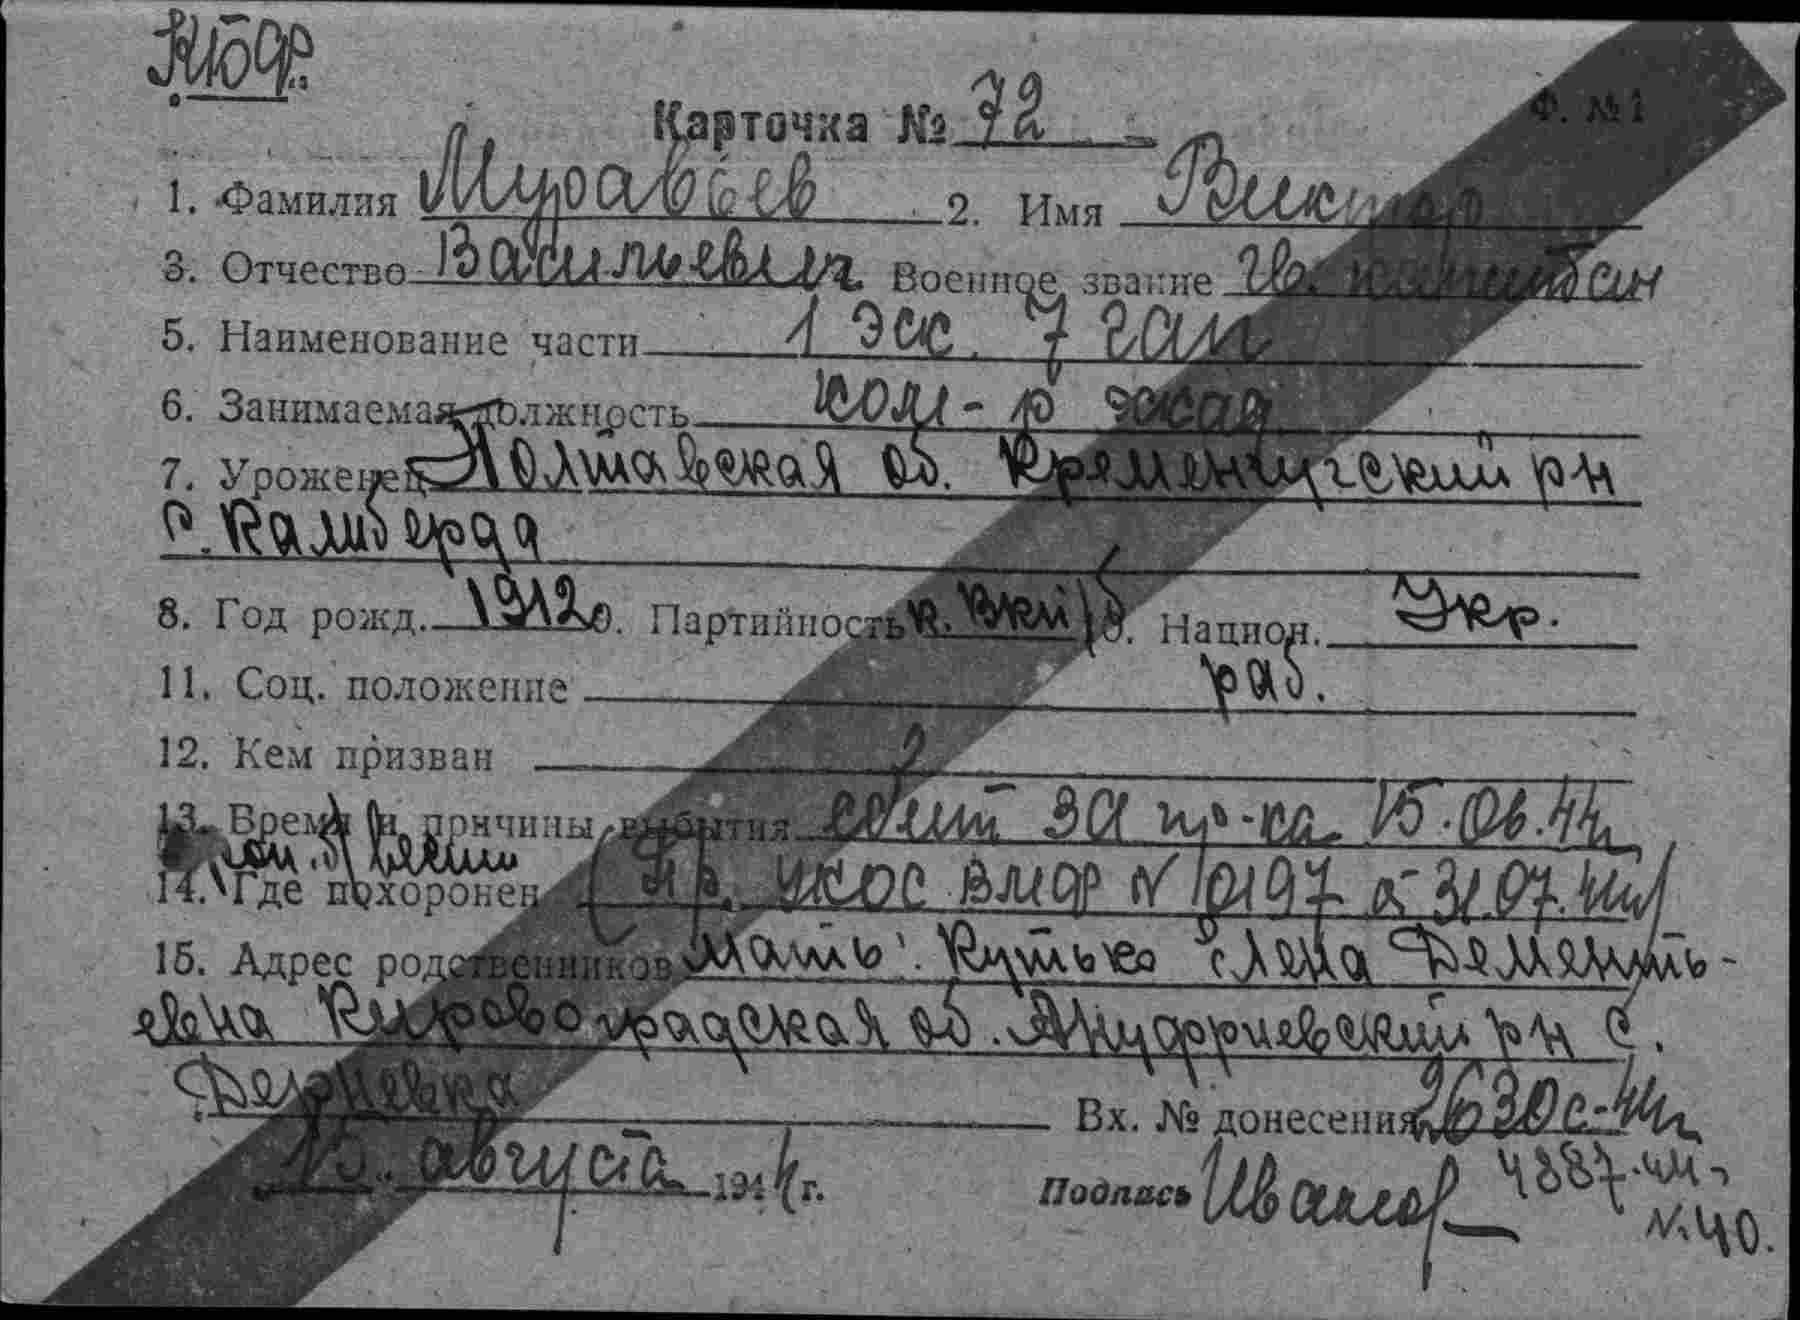 Карточка № 72
Ф. №1
1. Фамилия Муравьев 2. Имя Виктор
3. Отчество Васильевич Военное звание Гв. капитан
5. Наименование части 1 эск. 7 гап
6. Занимаемая должность ком-р
7. Уроженец Полтавская об. Кременчугский р-н
с.
8. Год рожд. 1912 9. Партийность 10. Национ. Укр.
11. Соц. положение раб.
12. Кем призван
13. Время и причины выбытия сбит ЗА пр-ка 15.06.44г
14. Где похоронен (Пр. УКОС ВМФ № 10197 от 31.07.44г)
15. Адрес родственников мать: Елена Дементь-
евна Кировоградская об. р-н с.
Вх. № донесения 2630с-44г
15 августа 1944 г.
Подпись Иванов 4887-44
№40.